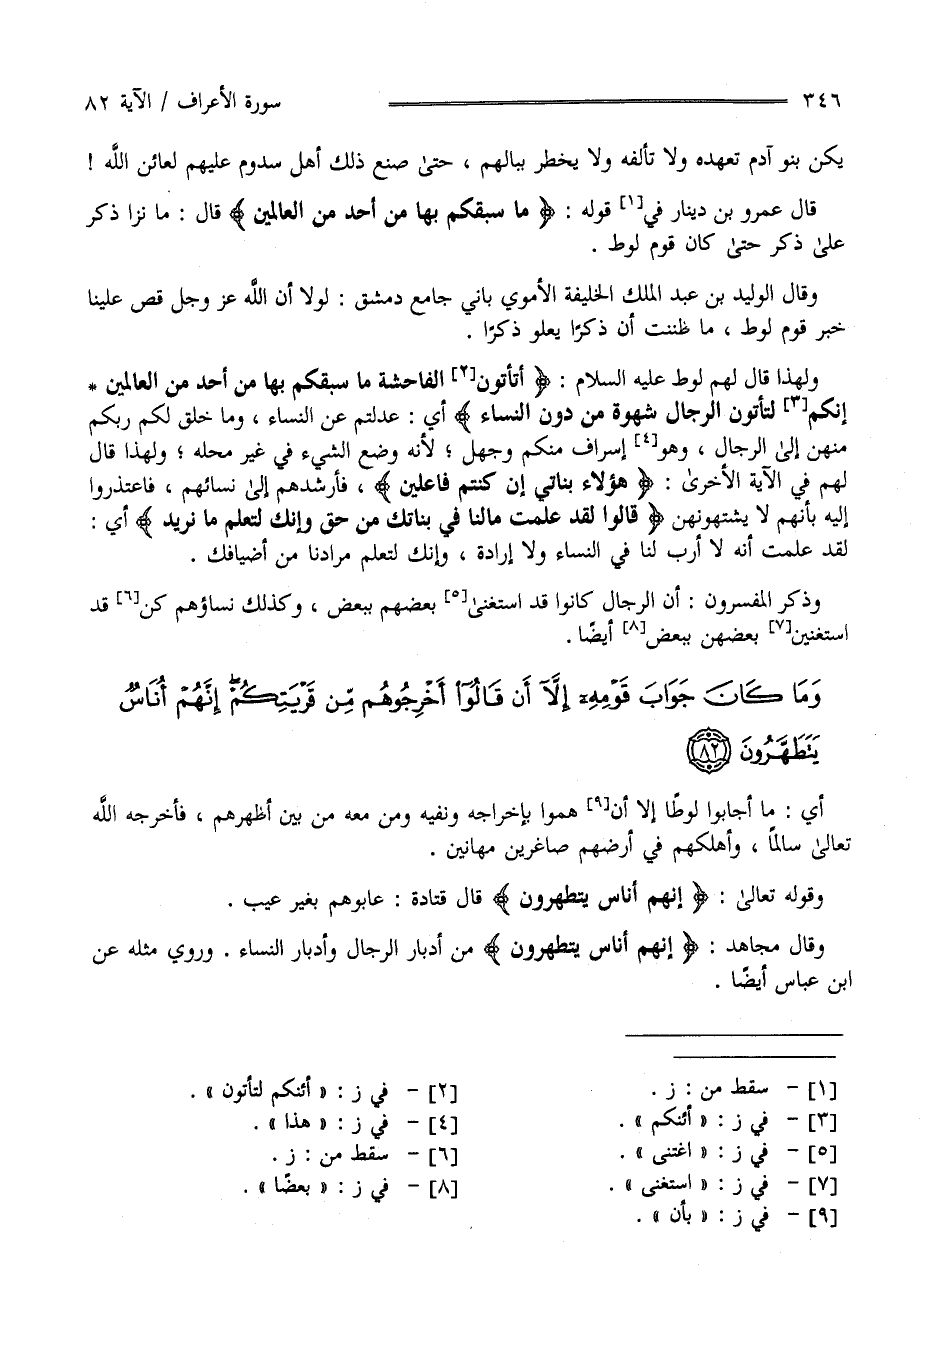 ٣٤٦ سورة الأعراف / الآية ٨٢
يكن بنو آدم تعهده ولا تألفه ولا يخطر ببالهم ، حتىٰ صنع ذلك أهل سدوم عليهم لعائن اللَّه !
قال عمرو بن دينار في[١] قوله : ﴿ ما سبقكم بها من أحد من العالمين ﴾ قال : ما نزا ذكر
علىٰ ذكر حتىٰ كان قوم لوط .
وقال الوليد بن عبد الملك الخليفة الأموي باني جامع دمشق : لولا أن اللَّه عز وجل قص علينا
خبر قوم لوط ، ما ظننت أن ذكرًا يعلو ذكرًا .
ولهذا قال لهم لوط عليه السلام : ﴿ أتأتون[٢] الفاحشة ما سبقكم بها من أحد من العالمين *
إنكم[٣] لتأتون الرجال شهوة من دون النساء ﴾ أي : عدلتم عن النساء ، وما خلق لكم ربكم
منهن إلىٰ الرجال ، وهو[٤] إسراف منكم وجهل ؛ لأنه وضع الشيء في غير محله ؛ ولهذا قال
لهم في الآية الأخرىٰ : ﴿ هؤلاء بناتي إن كنتم فاعلين ﴾ ، فأرشدهم إلىٰ نسائهم ، فاعتذروا
إليه بأنهم لا يشتهونهن ﴿ قالوا لقد علمت مالنا في بناتك من حق وإنك لتعلم ما نريد ﴾ أي :
لقد علمت أنه لا أرب لنا في النساء ولا إرادة ، وإنك لتعلم مرادنا من أضيافك .
وذكر المفسرون : أن الرجال كانوا قد استغنىٰ[٥] بعضهم ببعض ، وكذلك نساؤهم كن[٦] قد
استغنين[٧] بعضهن ببعض[٨] أيضًا .
وَمَا كَانَ جَوَابَ قَوْمِهِۦٓ إِلَّآ أَن قَالُوٓا۟ أَخْرِجُوهُم مِّن قَرْيَتِكُمْ ۖ إِنَّهُمْ أُنَاسٌ
يَتَطَهَّرُونَ ٨٢
أي : ما أجابوا لوطًا إلا أن[٩] هموا بإخراجه ونفيه ومن معه من بين أظهرهم ، فأخرجه اللَّه
تعالىٰ سالمًا ، وأهلكهم في أرضهم صاغرين مهانين .
وقوله تعالىٰ : ﴿ إنهم أناس يتطهرون ﴾ قال قتادة : عابوهم بغير عيب .
وقال مجاهد : ﴿ إنهم أناس يتطهرون ﴾ من أدبار الرجال وأدبار النساء . وروي مثله عن
ابن عباس أيضًا .
[١] – سقط من : ز . [٢] – في ز : « أئنكم لتأتون » .
[٣] – في ز : « أئنكم » . [٤] – في ز : « هذا » .
[٥] – في ز : « اغتنى » . [٦] – سقط من : ز .
[٧] – في ز : « استغنى » . [٨] – في ز : « بعضًا » .
[٩] – في ز : « بأن » .